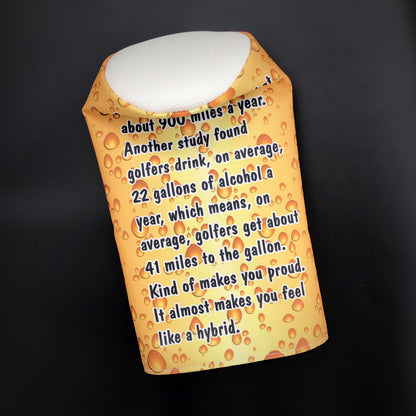 about 900 miles a year.
Another study found
golfers drink, on average,
22 gallons of alcohol a
year, which means, on
average, golfers get about
41 miles to the gallon.
Kind of makes you proud.
It almost makes you feel
like a hybrid.